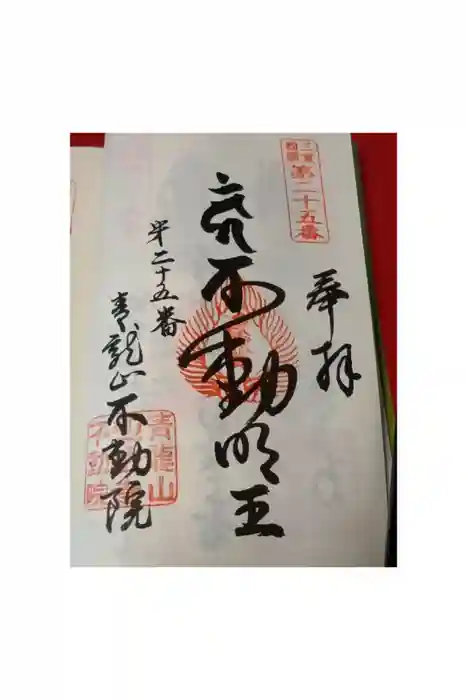 第二十五番
奉拝
荒不動明王
第二十五番
青龍山不動院
青龍山
不動院